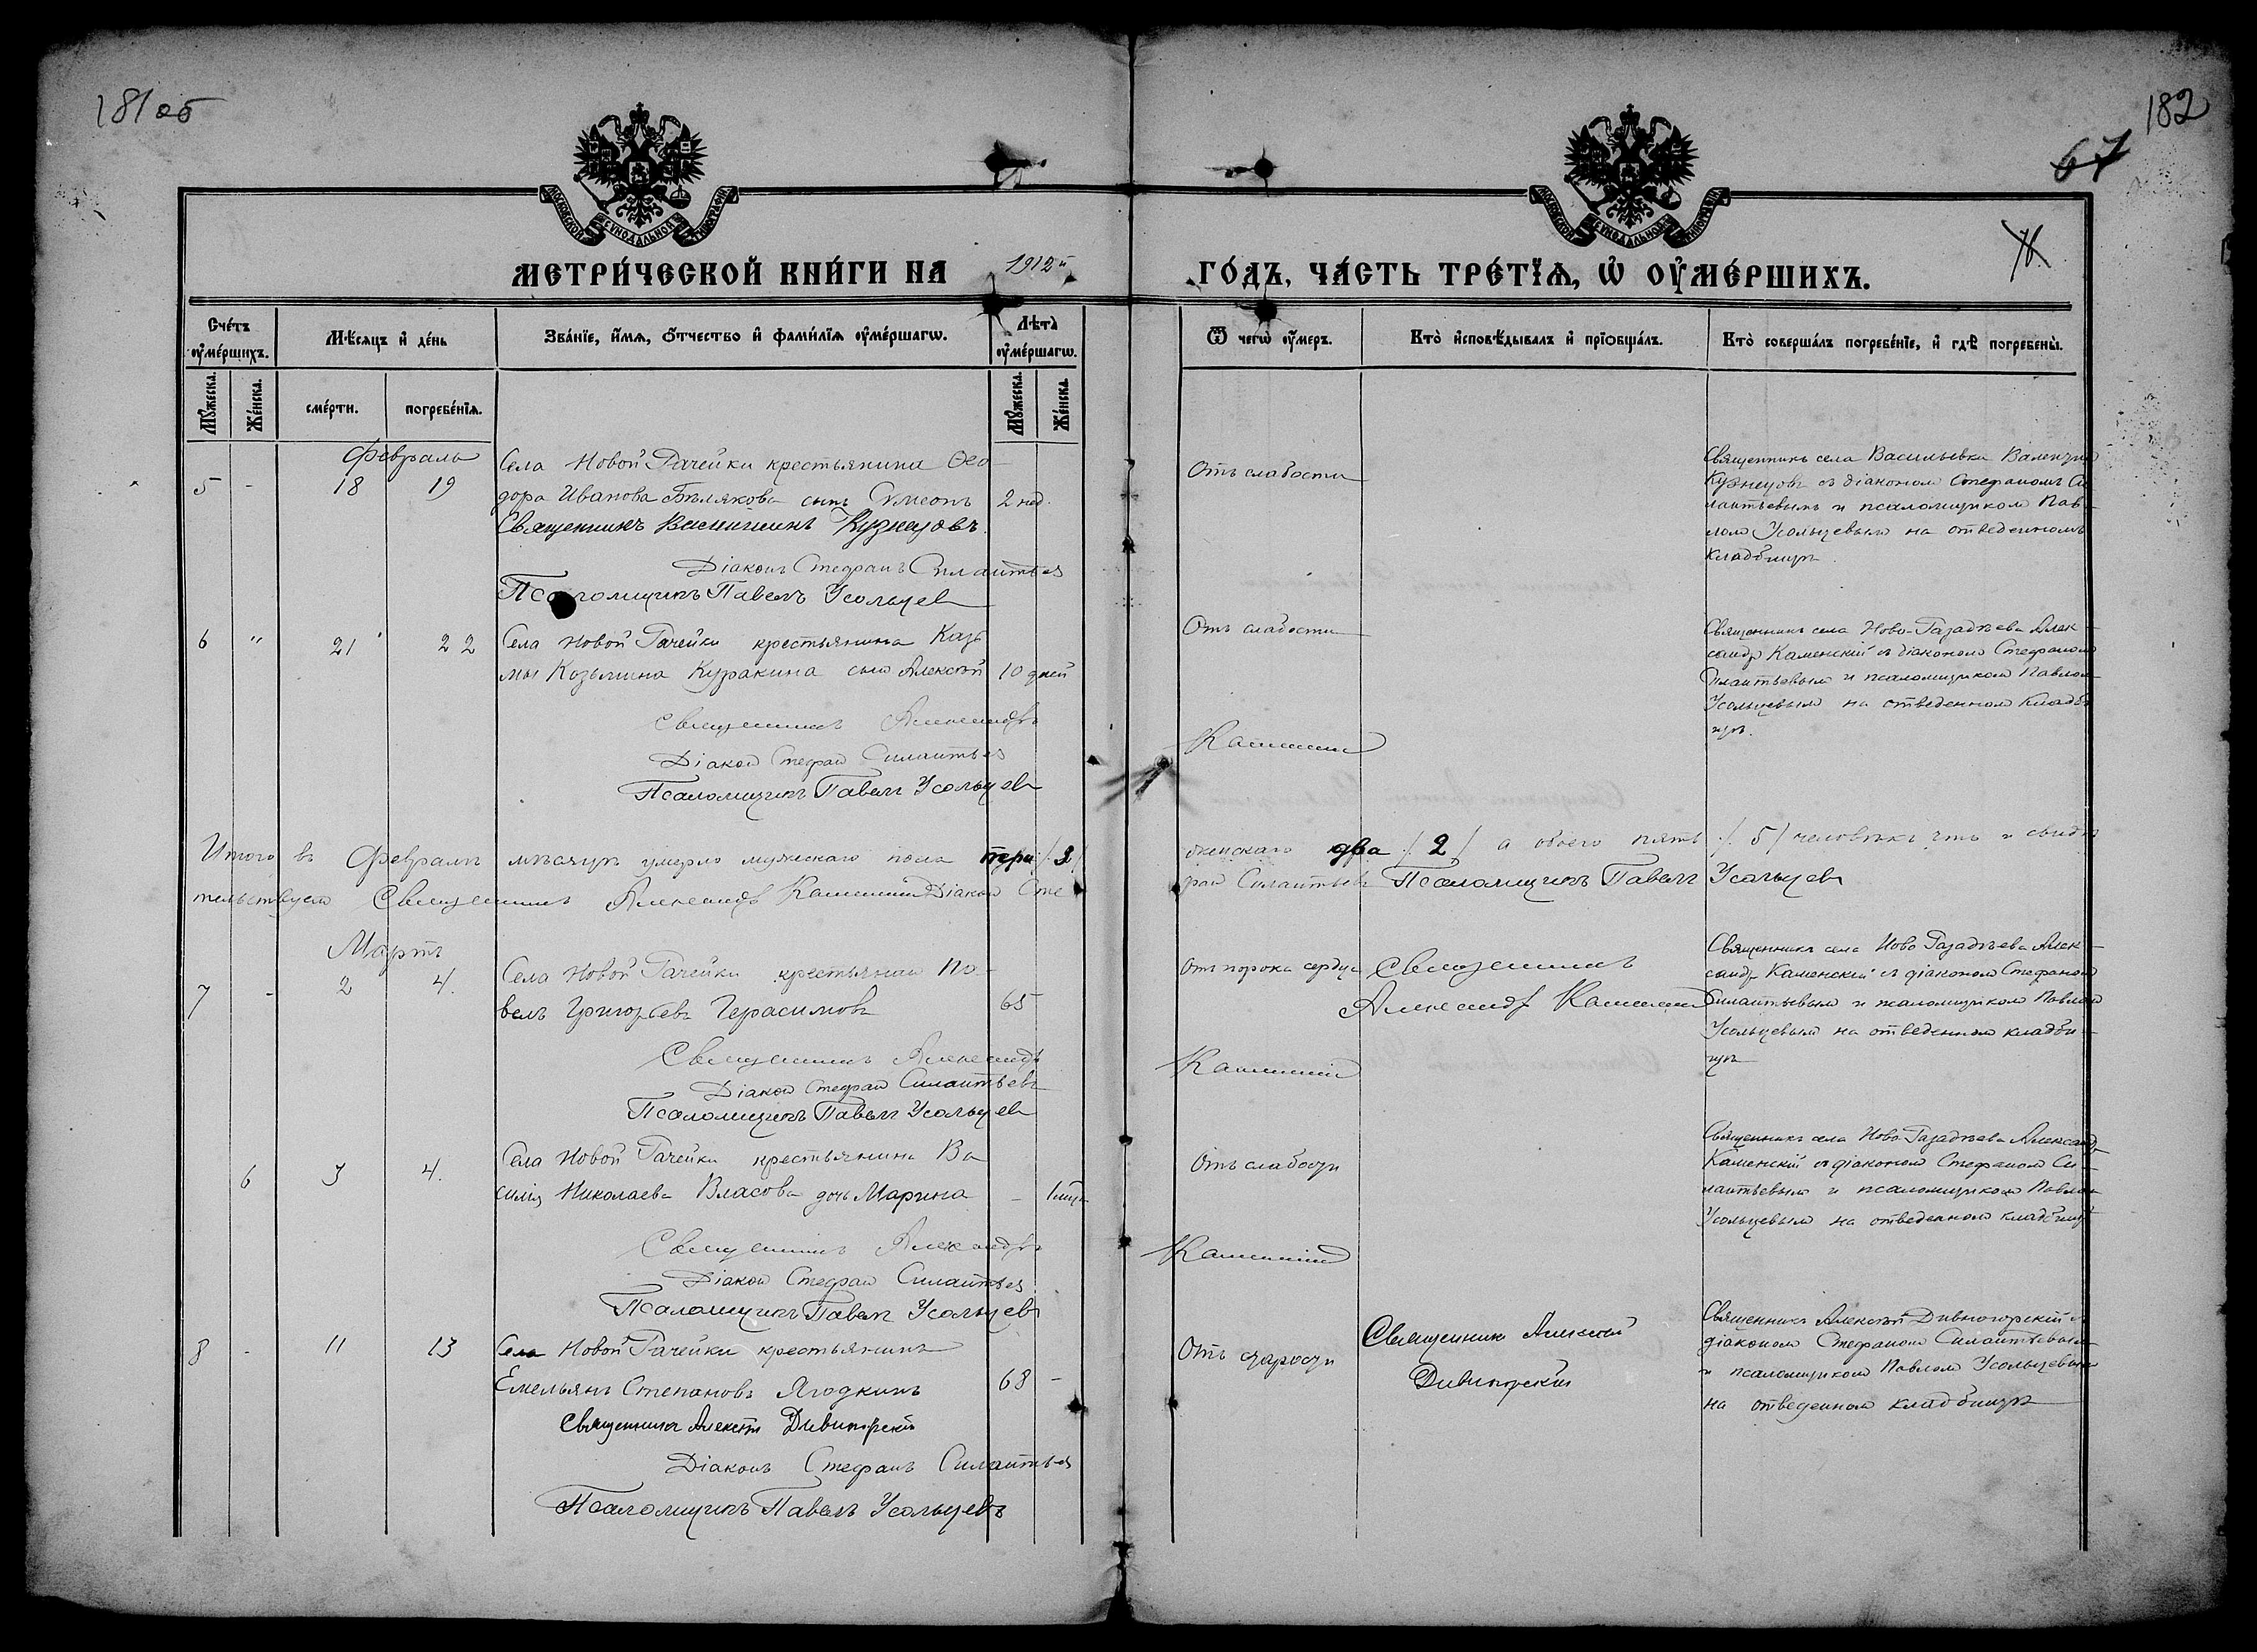 181 об
182
67
МОСКОВСКОЙ СѴНОДАЛЬНОЙ ТИПОГРАФІИ
МОСКОВСКОЙ СѴНОДАЛЬНОЙ ТИПОГРАФІИ
МЕТРИ́ЧЕСКОЙ КНИ́ГИ НА 1912й ГО́ДЪ, ЧА́СТЬ ТРЕ́ТІѦ, Ѡ҆ ОУ҆МЕ́РШИХЪ.
Сче́тъ оу҆ме́ршихъ.
Мѣ́сяцъ и҆ де́нь
Зва́ніе, и҆́мѧ, ѻ҆́тчество и҆ фами́лїѧ оу҆ме́ршагѡ.
Лѣ́та оу҆ме́ршагѡ.
Ѿ чегѡ̀ оу҆́меръ.
Кто̀ и҆сповѣ́дывалъ и҆ прїѻбща́лъ.
Кто̀ соверша́лъ погребе́нїе, и҆ гдѣ̀ погребены̀.
Мꙋ́жеска.
Же́нска.
сме́рти.
погребе́нїѧ.
Мꙋ́жеска.
Же́нска.
Февраль
5 - 18 19
Села Новой Рачейки крестьянина Ѳео-
дора Иванова Бѣлякова сынъ Сѵмеонъ 2 нед.
Священникъ Кузнецовъ.
Діаконъ Стефанъ Силантьев
Псаломщикъ Павелъ Усольцев
Отъ слабости
Священникъ села Васильевки
Кузнецовъ съ діакономъ Стефаномъ Си-
лантьевымъ и псаломщикомъ Пав-
ломъ Усольцевымъ на отведенномъ
кладбищѣ.
6 " 21 22
Села Новой Рачейки крестьянина Козь-
мы Козьмина Куракина сынъ Алексѣй 10 дней
Священникъ Александръ
Каменскій
Діаконъ Стефанъ Силантьев
Псаломщикъ Павелъ Усольцевъ
Отъ слабости
Священникъ села Ново- Алек-
сандръ Каменскій съ діакономъ Стефаномъ
Силантьевымъ и псаломщикомъ Павломъ
Усольцевымъ на отведенномъ кладби-
щѣ.
Итого въ Февралѣ мѣсяцѣ умерло мужескаго пола три /3/ женскаго два /2/ а обоего пять /5/ человѣкъ что и свидѣ-
тельствуемъ Священникъ Александръ Каменскій Діаконъ Сте-
фанъ Силантьевъ Псаломщикъ Павелъ Усольцевъ
Мартъ
7 - 2 4.
Села Новой Рачейки крестьянинъ Па-
велъ Григорьевъ Герасимовъ 65
Священникъ Александръ
Каменскій
Діаконъ Стефанъ Силантьевъ
Псаломщикъ Павелъ Усольцевъ
Отъ порока сердца
Священникъ
Александръ Каменскій
Священникъ села Ново Алек-
сандръ Каменскій съ діакономъ Стефаномъ
Силантьевымъ и псаломщикомъ Павломъ
Усольцевымъ на отведенномъ кладби-
щѣ
6 3 4.
Села Новой Рачейки крестьянина Ва-
силія Николаева Власова дочь Марина -
Священникъ Александръ
Каменскій
Діаконъ Стефанъ Силантьев
Псаломщикъ Павелъ Усольцевъ
Отъ слабости
Священникъ села Ново Александръ
Каменскій съ діакономъ Стефаномъ Си-
лантьевымъ и псаломщикомъ Павломъ
Усольцевымъ на отведенномъ кладбищѣ
8 - 11 13
Села Новой Рачейки крестьянинъ
Емельянъ Степановъ Ягодкинъ 68 -
Священникъ Алексѣй Дивногорскій
Діаконъ Стефанъ Силантьев
Псаломщикъ Павелъ Усольцевъ
Отъ старости
Священникъ Алексѣй
Дивногорскій
Священникъ Алексѣй Дивногорскій съ
діакономъ Стефаномъ Силантьевымъ
и псаломщикомъ Павломъ Усольцевымъ
на отведенномъ кладбищѣ